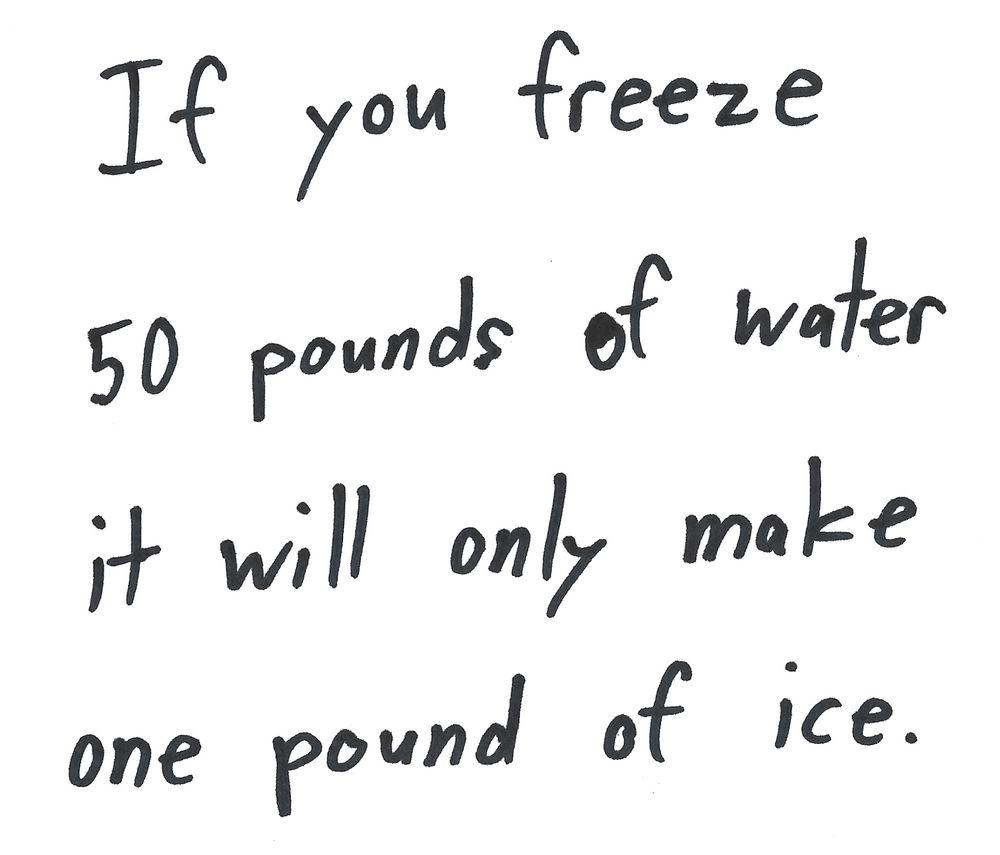 If you freeze
50 pounds of water
it will only make
one pound of ice.